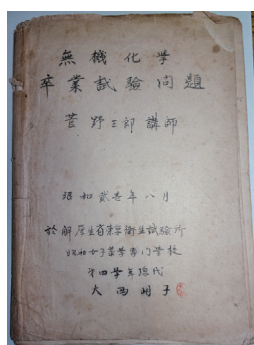 無機化学
卒業試験問題
菅野三郎講師
昭和貳壱年八月
於厚生省東京衛生試験所
昭和女子薬学専門学校
第四学年総代
大西明子